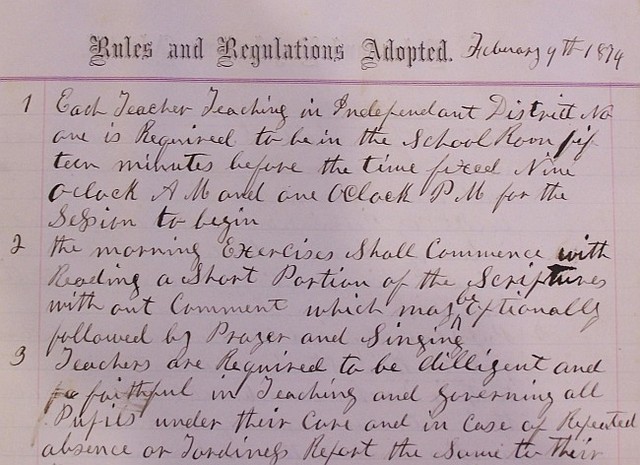 Rules and Regulations Adopted. Feberary 9th 1874
1 Each Teacher Teaching in Independant District No
one is Required to be in the School Room fif
teen minutes before the time fixed Nine
oclock A M and one OClock P M for the
Session to begin
2 the morning Exercises Shall Commence with
Reading a Short Portion of the Scriptures
with out Comment which may be optionally
followed by Prayer and Singing
3 Teachers are Required to be dilligent and
faithful in Teaching and governing all
Pupils under their Care and in Case of Repeated
absence or Tardiness Report the Same to their